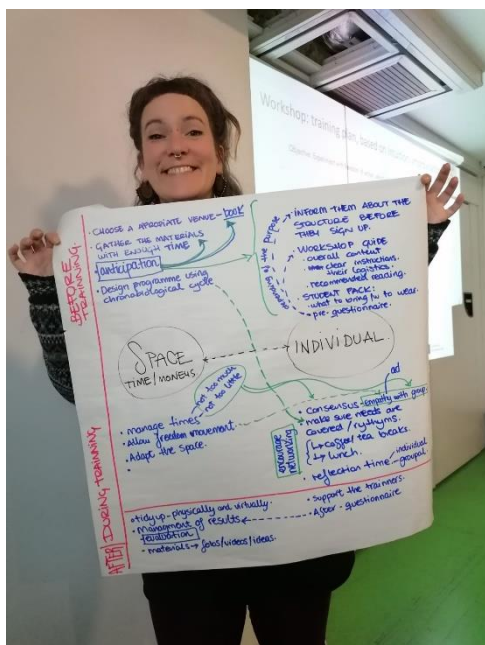 Workshop: training plan, based on
BEFORE TRAINNING
• CHOOSE A APROPIATE VENUE - book
• GATHER THE MATERIALS
WITH ENOUGH TIME
anticipation
• Design programme using
chronobiological cycle
depending of the purpose
INFORM THEM ABOUT THE
STRUCTURE BEFORE
THEY SIGN UP.
WORKSHOP GUIDE
overall content
clear instructions.
their logistics.
recommended reading.
STUDENT PACK:
what to bring to wear.
pre- questionnaire.
SPACE
TIME/MONEYS
INDIVIDUAL
DURING TRAINING
not too much
not too little
• manage times
• Allow freedom movement
• Adapt the space.
•
encourage
networking
ad
• consensus - empathy with group.
• make sure needs are
covered/rythyms.
coffee/tea breaks.
lunch.
• reflection time
individual
groupal.
AFTER
• tidy up - physically and virtually
• Managment of results
evaluation
• materials → fotos/videos/ideas.
• support the trainners.
• After - questionnaire